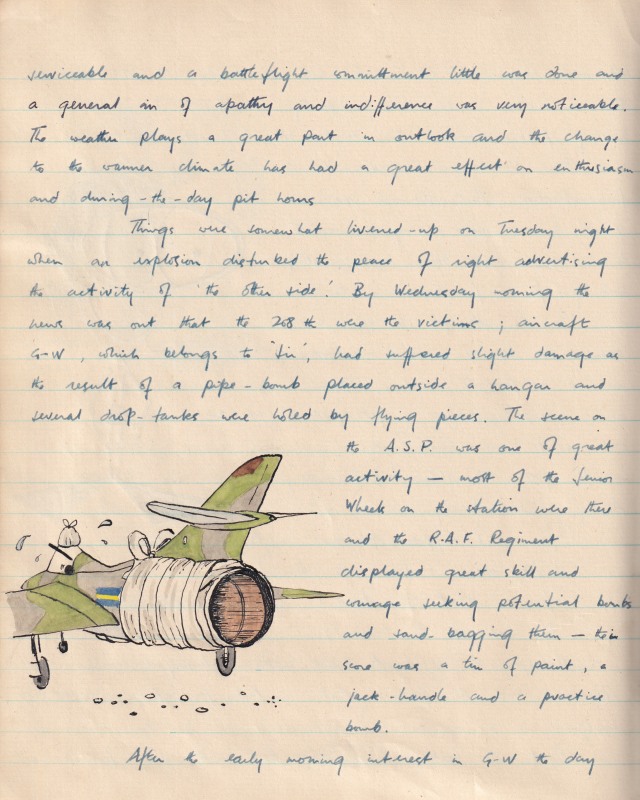 serviceable and a battleflight committment little was done and
a general air of apathy and indifference was very noticeable.
The weather plays a great part in outlook and the change
to the warmer climate has had a great effect on enthusiasm
and during-the-day pit hours
Things were somewhat livened-up on Tuesday night
when an explosion disturbed the peace of night advertising
the activity of 'the other side'. By Wednesday morning the
news was out that the 208 th were the victims ; aircraft
G-W , which belongs to 'Jiu', had suffered slight damage as
the result of a pipe-bomb placed outside a hangar and
several drop-tanks were holed by flying pieces. The scene on
the A.S.P. was one of great
activity — most of the Senior
Wheels on the station were there
and the R.A.F. Regiment
displayed great skill and
courage seeking potential bombs
and sand-bagging them — their
score was a tin of paint, a
jack-handle and a practice
bomb.
After the early morning interest in G-W the day